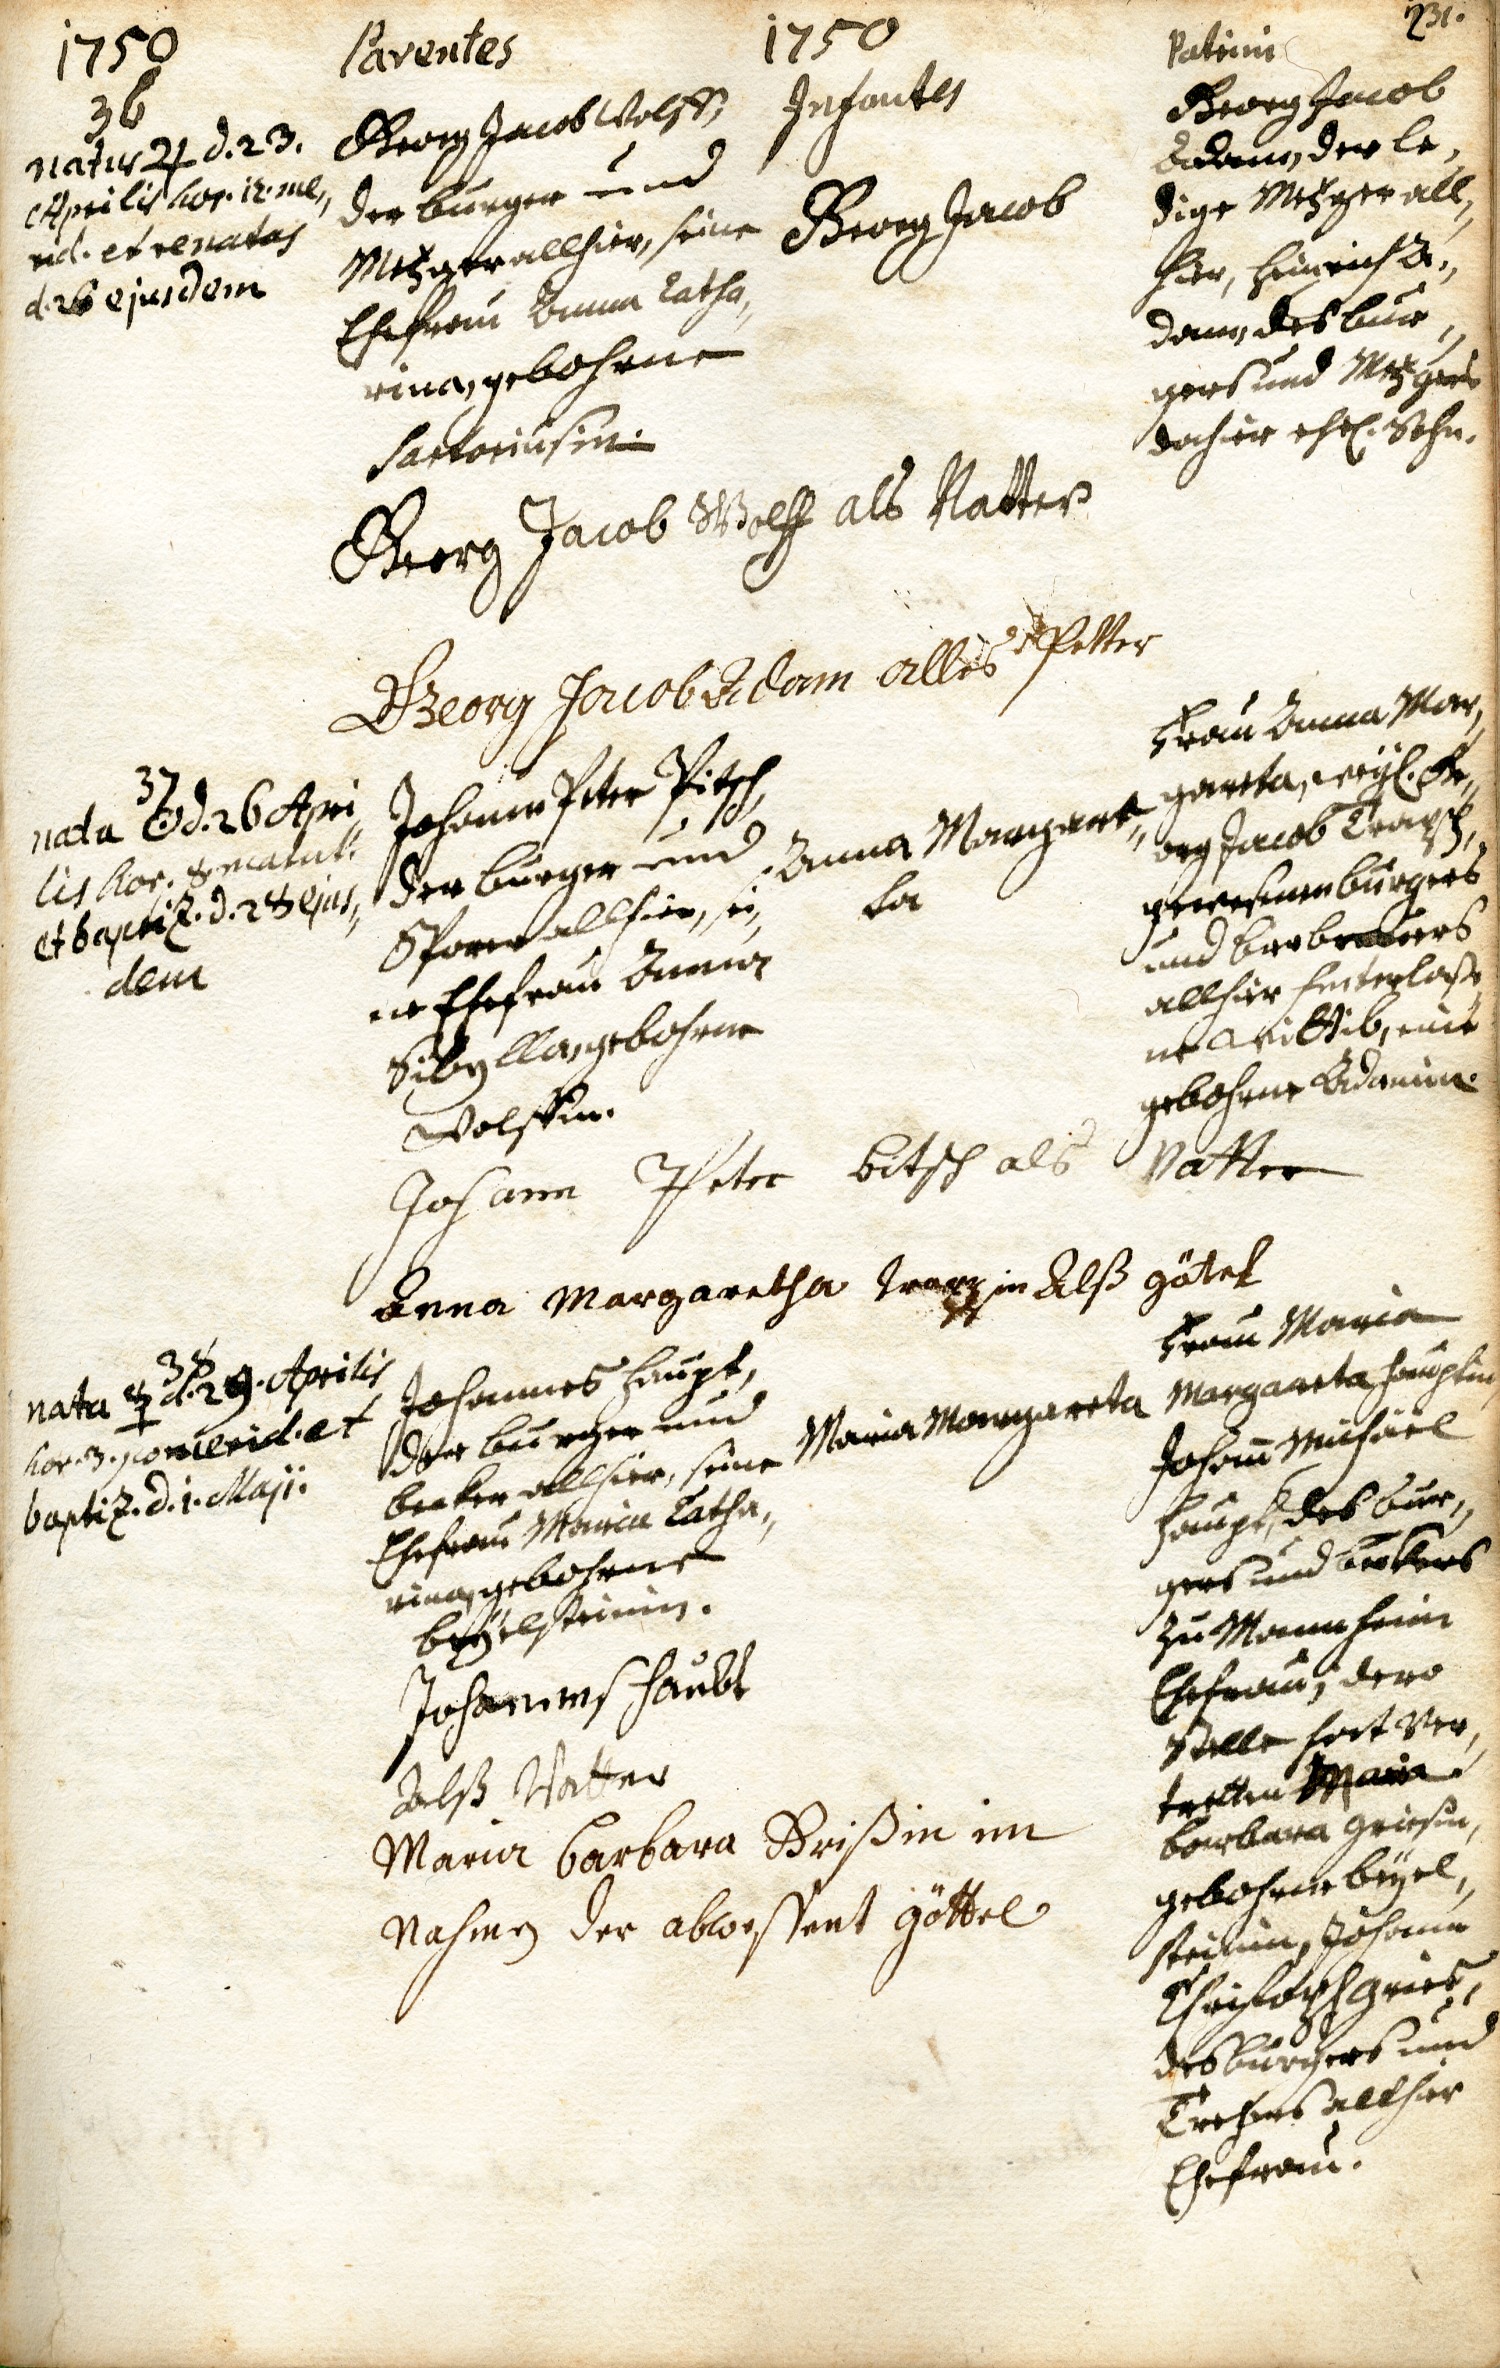 231.
1750
Parentes
1750
Infantes
Patrini
36
natus ♃ d. 23.
Aprilis hor. 12. me„
rid. et renatus
d. 26 ejusdem
Georg Jacob Wolff,
der burger und
Metzger allhier, seine
Ehefrau Anna Catha„
rina, gebohrne
Sartoriusin.
Georg Jacob
Georg Jacob
Adam, der le„
dige Metzger all„
hier, Heinrich A„
dam, des bur„
gers und Metzgers
dahier ehel. Sohn.
Georg Jacob Wolff als Vatter
Georg Jacob Adam alles Petter
37
nata ☉ d. 26 Apri
lis hor. 8 matut.
et baptiz. d. 28 ejus„
dem
Johann Peter Pitsch,
der burger und
Sporer allhier, sei„
ne Ehefrau Anna
Sibylla, gebohrne
Wolffin.
Anna Margare„
ta
Frau Anna Mar„
gareta, weyl. Ge„
org Jacob
gewesenen burgers
und bierbrauers
allhier hinterlaße
ne Wittib, eine
gebohrne Adamin.
Johann Peter bitsch als Vatter
Anna Margaretha in Alß götel
38
nata ☿ d. 29. Aprilis
hor. 3. pomerid. et
baptiz. d. 1. Maji.
Johannes Haupt,
der burger und
becker allhier, seine
Ehefrau Maria Catha„
rina, gebohrne
beyelsteinin.
Maria Margareta
Frau Maria
Margareta Hauptin,
Johann Michael
Haupt, des bur„
gers und beckers
zu Mannheim
Ehefrau, dero
Stelle hat ver„
tretten Maria
barbara Griesin,
gebohrne beyel„
steinin, Johann
Christoph Gries,
des burgers und
Drehers allhier
Ehefrau.
Johannes Haubt
Alß Vatter
Maria barbara Grißin im
Nahmen der abwessent göttel